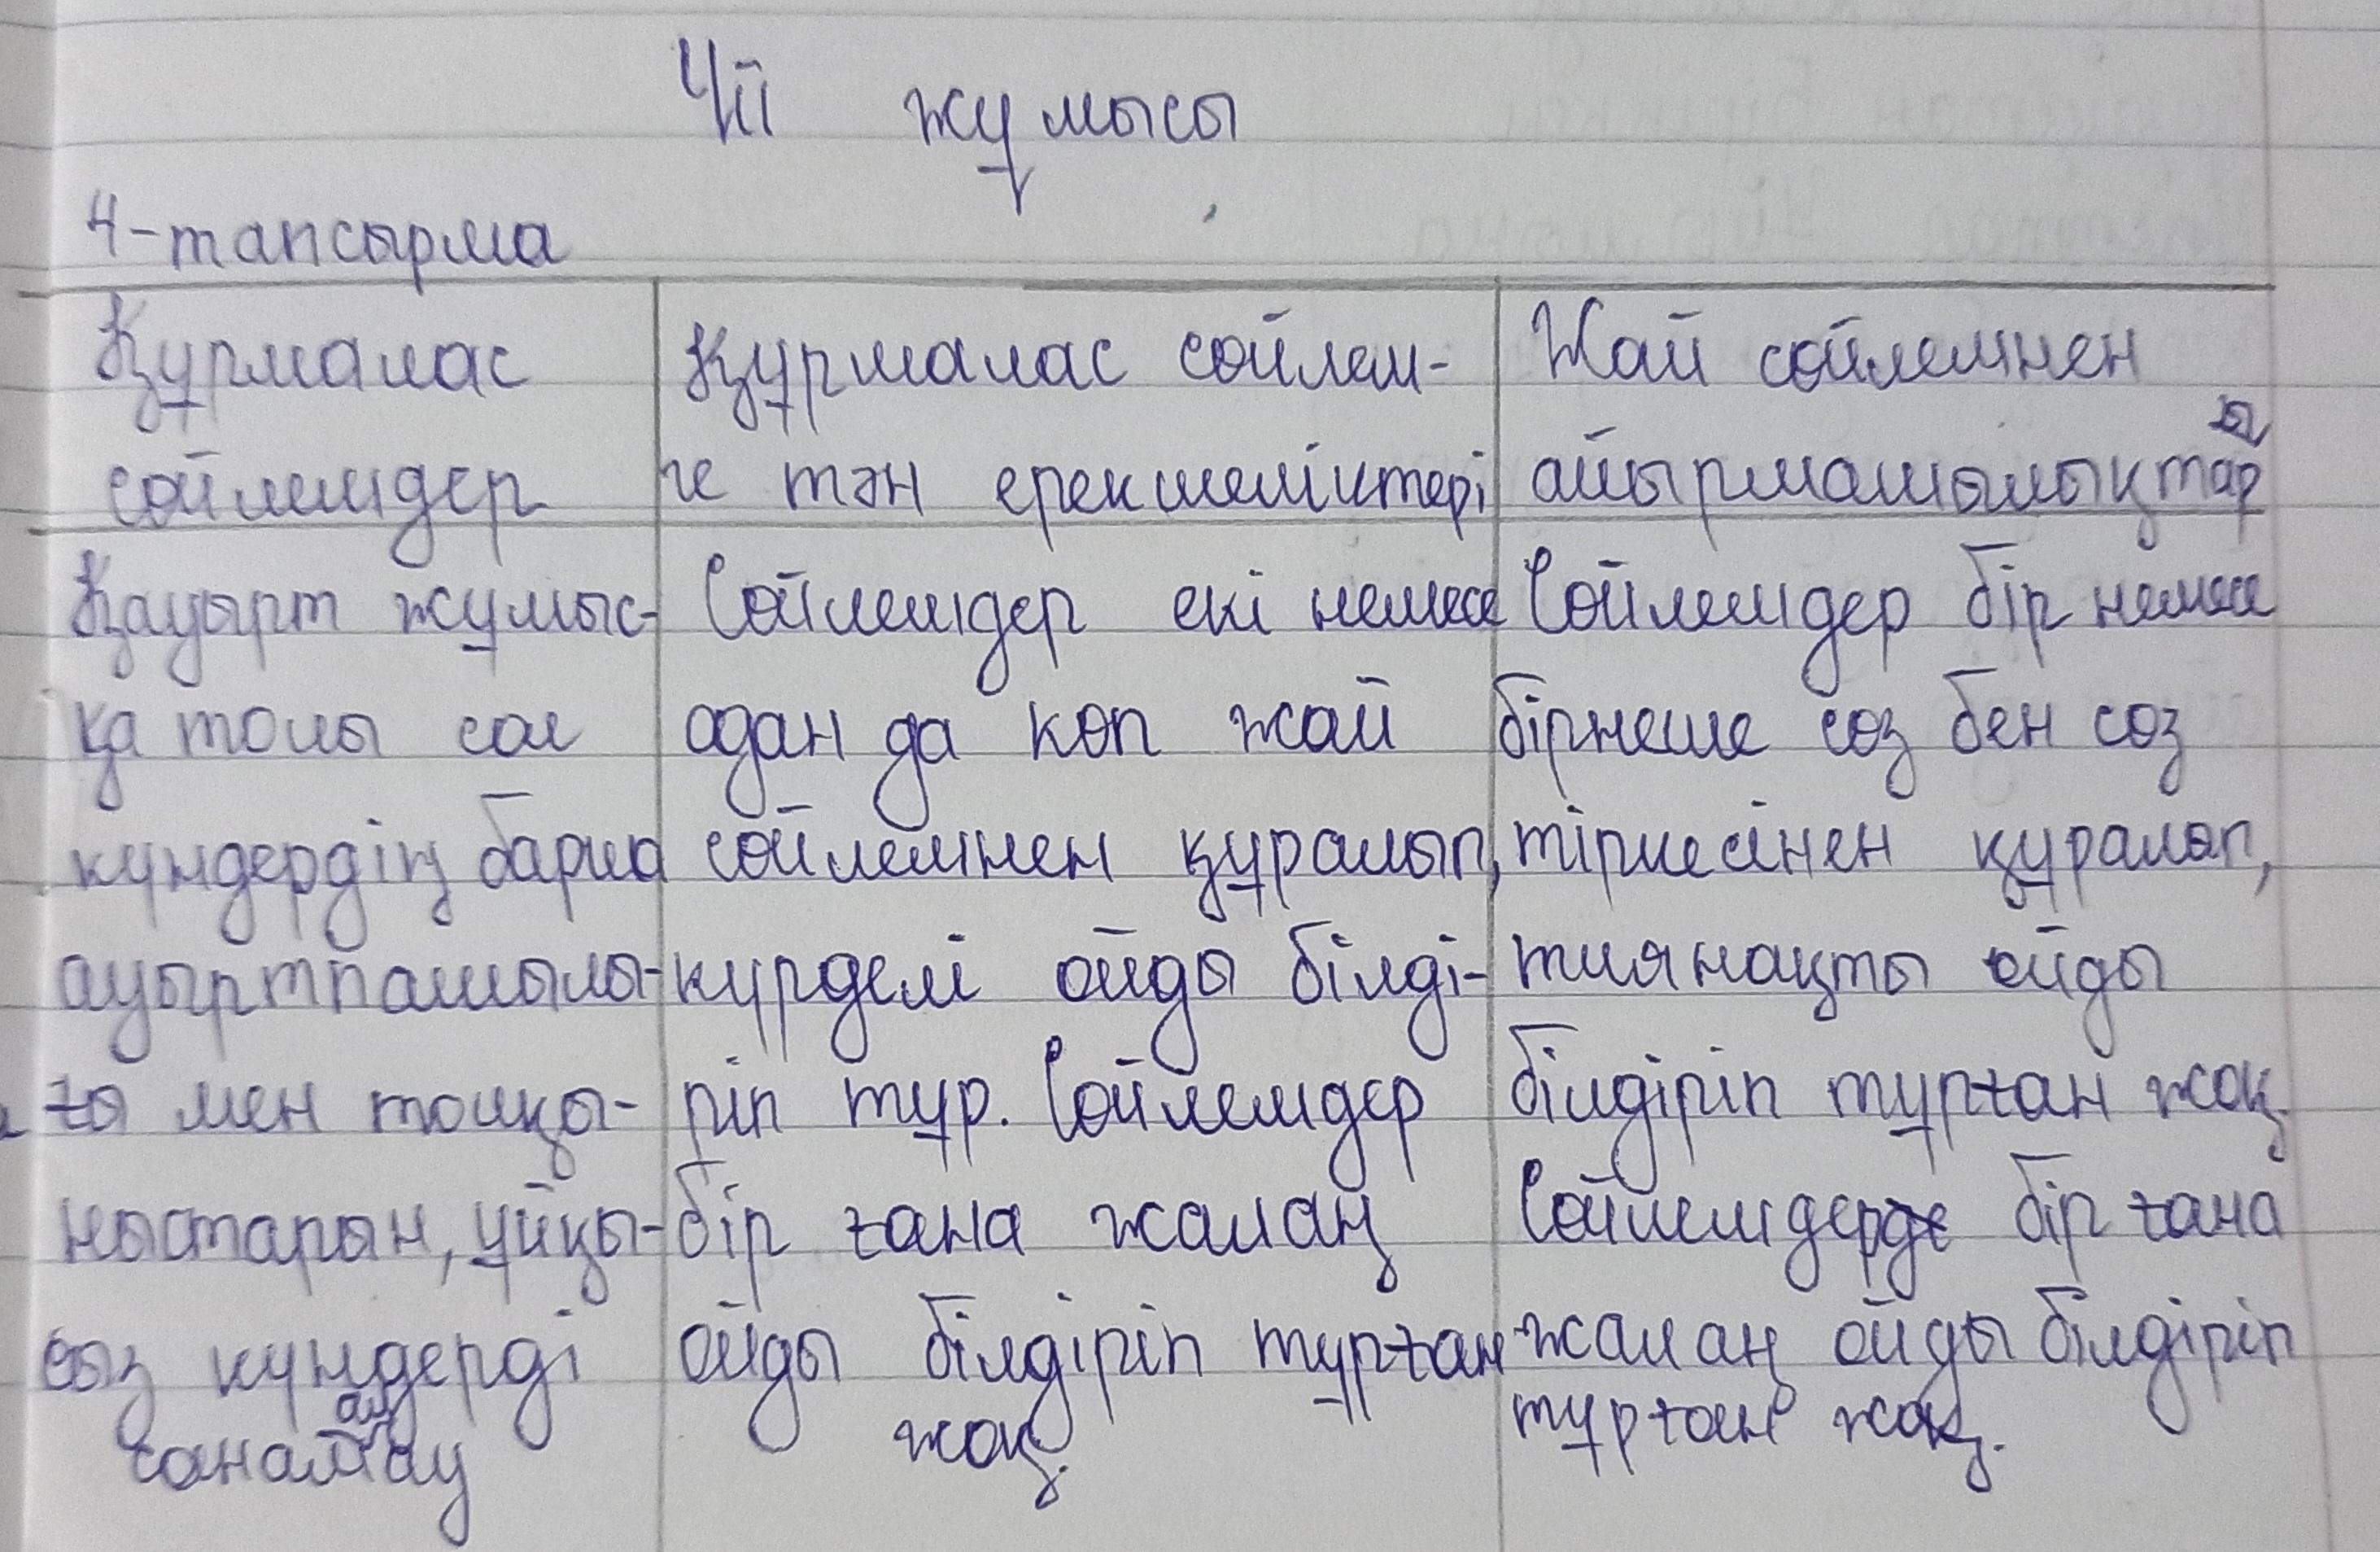 Үй жұмысы
4-тапсырма
Құрмалас
сөйлемдер
Құрмалас сөйлем-
ге тән ерекшеліктері
Жай сөйлемнен
айырмашылықтары
Қауырт жұмыс-
қа толы сол
күндердің барша
ауыртпашылы-
ғы мен толқы-
ныстарын, ұйқы-
сыз күндерді
Сөйлемдер екі немесе
одан да көп жай
сөйлемнен құралып,
күрделі ойды білді-
ріп тұр. Сөйлемдер
бір ғана жалаң
ойды білдіріп тұрған
жоқ.
Сөйлемдер бір немесе
бірнеше сөз бен сөз
тіркесінен құралып,
тиянақты ойды
білдіріп тұрған жоқ.
Сөйлемдерде бір ғана
жалаң ойды білдіріп
тұрған жоқ.